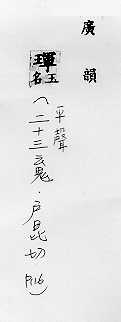 廣韻
琿 玉名
平聲
〈二十三䰟．戶昆切 P116〉